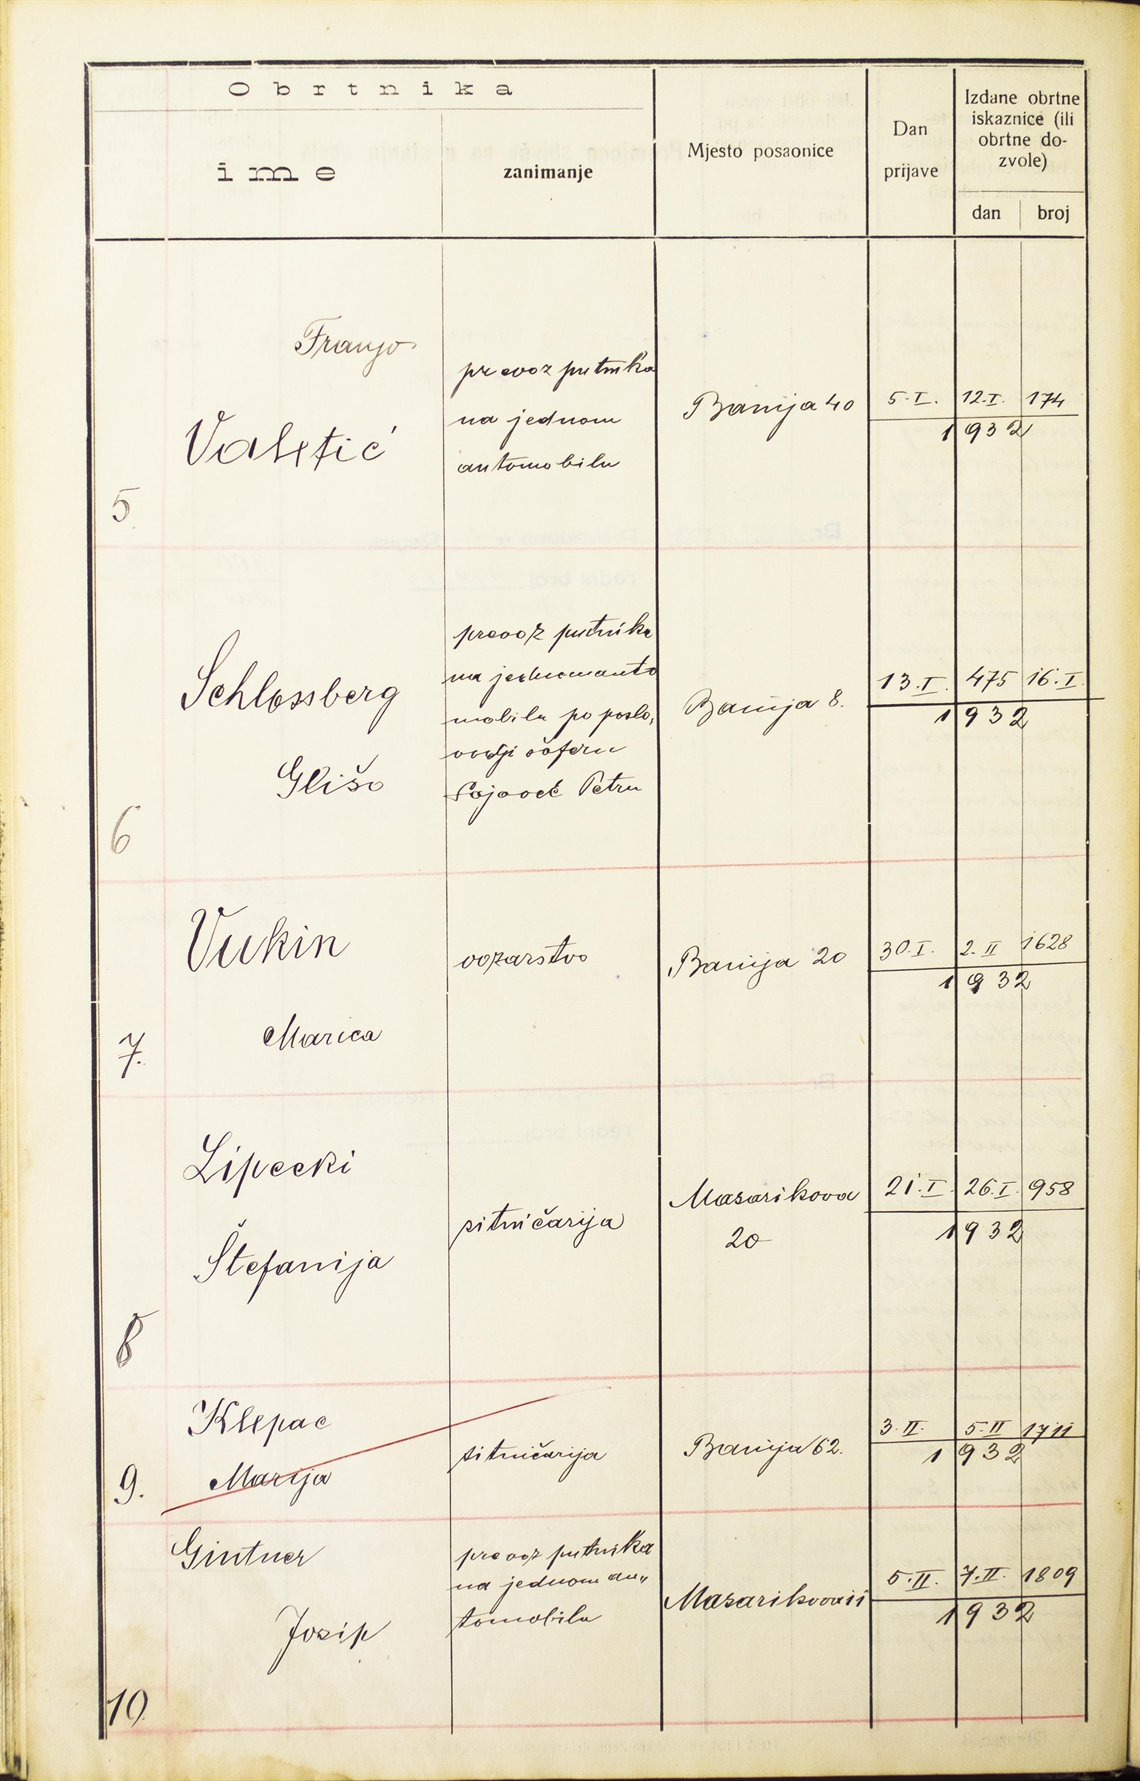 Obrtnika
ime
zanimanje
Mjesto posaonice
Dan
prijave
Izdane obrtne
iskaznice (ili
obrtne do-
zvole)
dan
broj
5
Franjo
Valetić
prevoz putnika
na jednom
automobilu
Banija 40
5.I.
12.I.
174
1932
6
Schlossberg
Glišo
prevoz putnika
na jednom auto
mobilu po poslo,
vodji šoferu
Petru
Banija 8.
13.I.
475
16.I.
1932
7.
Vukin
Marica
vozarstvo
Banija 20
30.I.
2.II
1628
1932
8
Lipecki
Štefanija
sitničarija
Masarikova
20
21.I.
26.I.
958
1932
9.
Klepac
Marija
sitničarija
Banija 62.
3.II.
5.II
1711
1932
10.
Gintner
Josip
prevoz putnika
na jednom au„
tomobilu
Masarikova 11
5.II.
7.II.
1809
1932